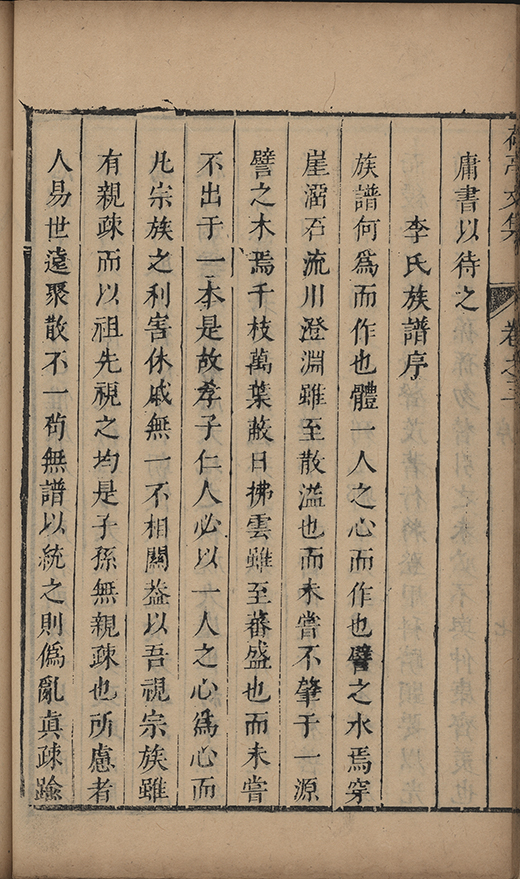 文集 卷之三
庸書以待之
李氏族譜序
族譜何爲而作也體一人之心而作也譬之水焉穿
崖溜石流川澄淵雖至散溢也而未嘗不肇于一源
譬之木焉千枝萬葉蔽日拂雲雖至蕃盛也而未嘗
不出于一本是故孝子仁人必以一人之心爲心而
凡宗族之利害休戚無一不相關葢以吾視宗族雖
有親疎而以祖先視之均是子孫無親疎也所慮者
人易世遠聚散不一苟無譜以統之則僞亂眞疎踰